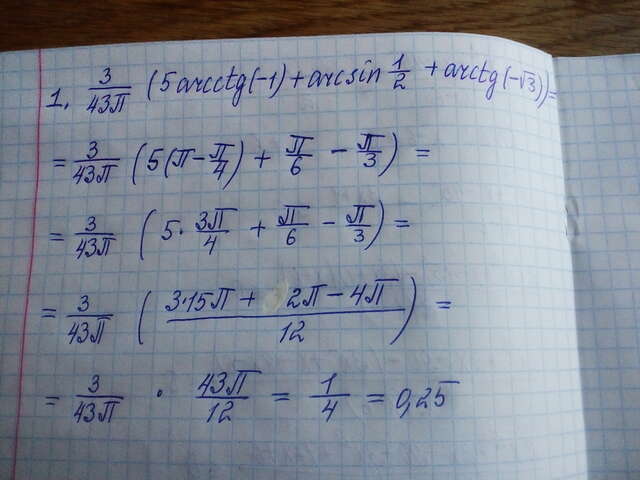 1. 3/43π (5arcctg(-1) + arcsin 1/2 + arctg(-√3)) =
= 3/43π (5(π - π/4) + π/6 - π/3) =
= 3/43π (5 · 3π/4 + π/6 - π/3) =
= 3/43π ((3·15π + 2π - 4π)/12) =
= 3/43π · 43π/12 = 1/4 = 0,25